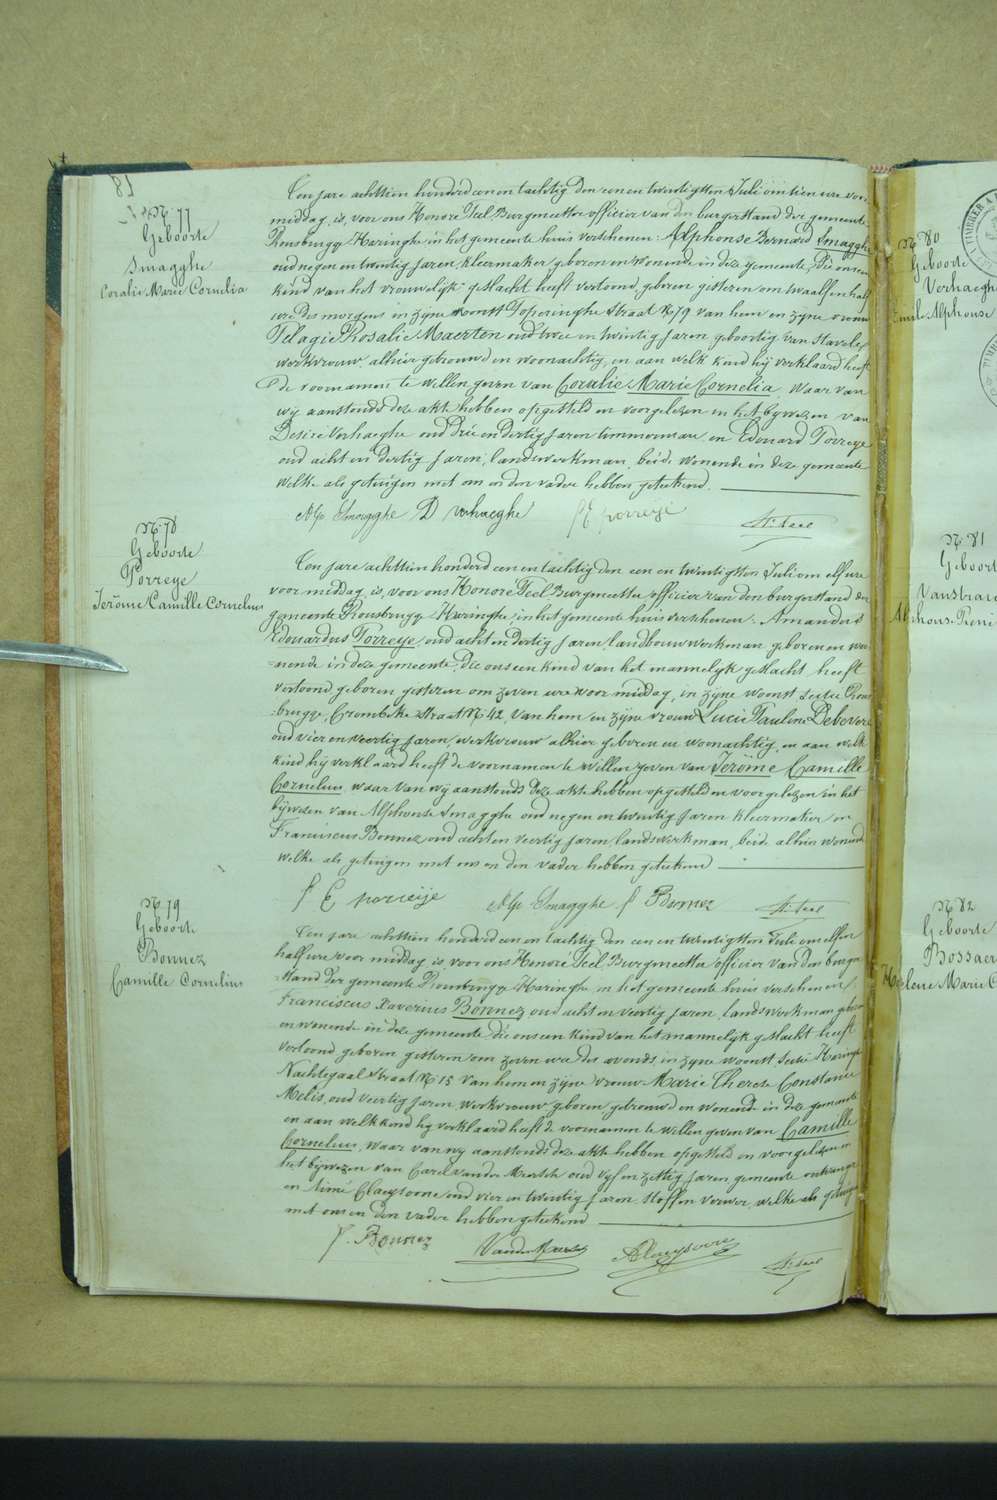 81
N° 77
Geboorte
Smagghe
Coralie Marie Cornelia
Een jare achttien honderd een en tachtig den een en twintigsten Juli om tien ure voor
middag, is, voor ons Honoré Teel, Burgmeester officier van den burgerstand der gemeente
Rousbrugge Haringhe in het gemeente huis verschenen: Alphonse Bernard Smagghe
oud negen en twintig jaren, kleermaker geboren en wonende in deze gemeente, Die ons een
kind van het vrouwelijk geslacht heeft vertoond, geboren gisteren om twaalf en half
ure des morgens in zijne woonst Poperinghe Straat N° 79 van hem en zijne vrouw
Pelagie Rosalie Maerten oud twee en twintig jaren geboortig van Stavele,
werkvrouw, alhier getrouwd en woonachtig, en aan welk kind hij verklaard heeft
de voornamen te willen geven van Coralie Marie Cornelia waar van
wij aanstonds deze akte hebben opgesteld en voorgelezen in het bijwezen van
Desiré Verhaeghe oud drie en dertig jaren timmerman en Edouard Porreye
oud acht en dertig jaren, landswerkman, beide wonende in deze gemeente
welke als getuigen met ons en den vader hebben geteekend.
Alp Smagghe D Verhaeghe f E porreye H. Teel
N° 78
Geboorte
Porreye
Jerôme Camille Cornelius
Een jare achttien honderd een en tachtig den een en twintigsten Juli om elf ure
voor middag, is, voor ons Honoré Teel Burgmeester officier van den burgerstand der
gemeente Rousbrugge Haringhe, in het gemeente huis verschenen: Amandus
Edouardus Porreye, oud acht en dertig jaren, landbouw werkman geboren en wo-
-nende in deze gemeente, Die ons een kind van het mannelyk geslacht heeft
vertoond, geboren gisteren om zeven ure voor middag, in zyne woonst sectie Rous
:brugge, Crombeke straat N° 42, van hem en zyne vrouw Lucie Pauline Debever
oud vier en veertig jaren, werkvrouw alhier geboren en woonachtig, en aan welk
kind hij verklaard heeft de voornamen te willen geven van Jerôme Camille
Cornelius, waar van wij aanstonds deze akte hebben opgesteld en voorgelezen in het
bijwezen van Alphonse Smagghe oud negen en twintig jaren kleermaker en
Franciscus Bonnez oud acht en veertig jaren, landswerkman, beide alhier wonende
welke als getuigen met ons en den vader hebben geteekend
f E porreije Alp Smagghe f Bonnez H. Teel
N° 79
Geboorte
Bonnez
Camille Cornelius
Een jare achttien honderd een en tachtig den een en twintigsten Juli om elf en
half ure voor middag is voor ons Honoré Teel, Burgmeester officier van den burger
-stand der gemeente Rousbrugge Haringhe, in het gemeente huis verschenen,
Franciscus Xaverius Bonnez oud acht en veertig jaren, landswerkman geboren
en wonende in deze gemeente, die ons een kind van het mannelyk geslacht heeft
vertoond geboren gisteren om zeven ure des avonds, in zyne woonst, sectie Haringe
Nachtegaal straat N° 15 van hem en zijne vrouw Marie Therese Constance
Melis, oud veertig jaren, werkvrouw geboren getrouwd en wonende in deze gemeente
en aan welk kind hy verklaard heeft de voornamen te willen geven van Camille
Cornelius, waar van wy aanstonds deze akte hebben opgesteld en voorgelezen in
het bywezen van Carel vander Meersch oud vyf en zestig jaren, gemeente ontvanger
en Aimé Claeysoone oud vier en twintig jaren stoffen verwer, welke als getuigen
met ons en den vader hebben geteekend
f. Bonnez Vander Meersch A Claeysoone H. Teel
N° 80
Geboorte
Verhaeghe
Emile Alphonse
N° 81
Geboort
Vanstrac
Alphons. Reni
N° 82
Geboorte
Bossaer
Helene Marie C